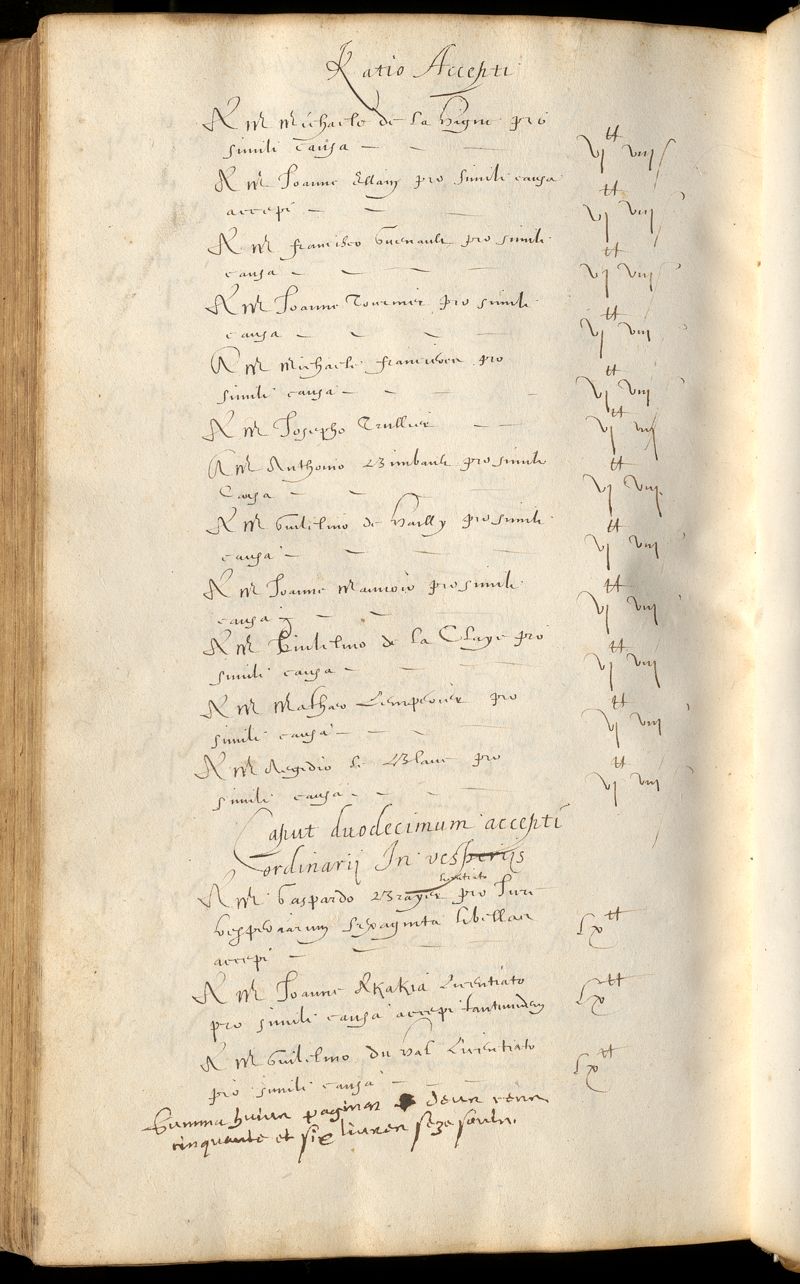 Ratio Accepti
A M Michaele de la Vigne pro
simili causa — — — vj tt viij
A M Joanne Allain pro simili causa
accepi — — — vj tt viij
A M Francisco Guenault pro simili
causa — — — — vj tt viij
A M Joanne Tournier pro simili
causa — — — — vj tt viij
A M Michaele pro
simili causa — — — — vj tt viij
A M Josepho Trullier — — vj tt viij
A M Anthonio Bimbault pro simili
causa — — — vj tt viij
A M Guilielmo de Vailly pro simili
causa — — — — vj tt viij
A M Joanne pro simili
causa — — — vj tt viij
A M Guilielmo de la Claye pro
simili causa — — — vj tt viij
A M Mathaeo Lemperier pro
simili causa — — — — vj tt viij
A M Aegidio le Blanc pro
simili causa — — — — vj tt viij
Caput duodecimum accepti
ordinarii In vesperijs
licentiato
A M Gaspardo Brayer pro Jure
vesperiarum sexaginta libellas
accepi — — — lx tt
A M Joanne Akakia Licentiato
pro simili causa accepi tantundem lx tt
A M Guilielmo du Val Licentiato
pro simili causa — — — lx tt
Summa huius paginae deux cens
cinquante et six livres seze soulz.